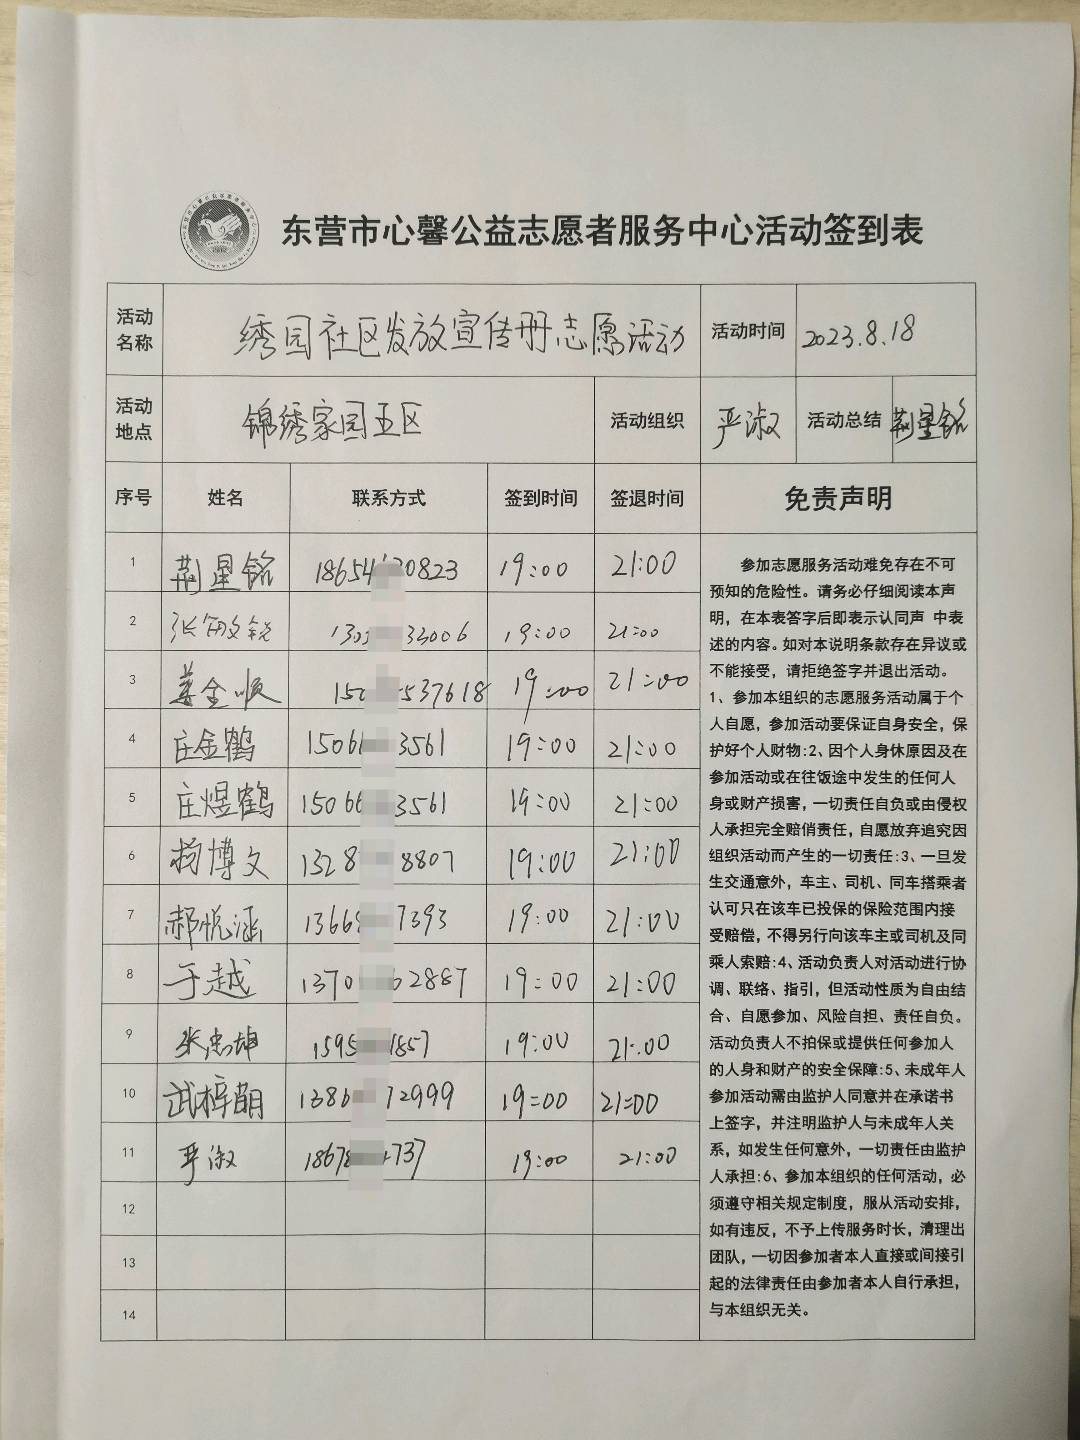 东营市心馨公益志愿者服务中心活动签到表
活动名称 绣园社区发放宣传册志愿活动 活动时间 2023.8.18
活动地点 锦绣家园五区 活动组织 严淑 活动总结 荆星铭
序号 姓名 联系方式 签到时间 签退时间 免责声明
1 荆星铭 18654 30823 19:00 21:00
2 张 锐 130 33006 19:00 21:00
3 姜金顺 150 537618 19:00 21:00
4 庄金鹤 15066 3561 19:00 21:00
5 庄煜鹤 15066 3561 19:00 21:00
6 杨博文 1328 8807 19:00 21:00
7 郝悦涵 1366 7393 19:00 21:00
8 于越 1370 62887 19:00 21:00
9 张忠坤 1595 1857 19:00 21:00
10 武梓萌 1386 72999 19:00 21:00
11 严淑 1867 737 19:00 21:00
12
13
14
参加志愿服务活动难免存在不可
预知的危险性。请务必仔细阅读本声
明，在本表答字后即表示认同声 中表
述的内容。如对本说明条款存在异议或
不能接受，请拒绝签字并退出活动。
1、参加本组织的志愿服务活动属于个
人自愿，参加活动要保证自身安全，保
护好个人财物:2、因个人身休原因及在
参加活动或在往饭途中发生的任何人
身或财产损害，一切责任自负或由侵权
人承担完全赔俏责任，自愿放弃追究因
组织活动而产生的一切责任:3、一旦发
生交通意外，车主、司机、同车搭乘者
认可只在该车已投保的保险范围内接
受赔偿，不得另行向该车主或司机及同
乘人索赔:4、活动负责人对活动进行协
调、联络、指引，但活动性质为自由结
合、自愿参加、风险自担、责任自负。
活动负责人不拍保或提供任何参加人
的人身和财产的安全保障:5、未成年人
参加活动需由监护人同意并在承诺书
上签字，并注明监护人与未成年人关
系，如发生任何意外，一切责任由监护
人承担:6、参加本组织的任何活动，必
须遵守相关规定制度，服从活动安排，
如有违反，不予上传服务时长，清理出
团队，一切因参加者本人直接或间接引
起的法律责任由参加者本人自行承担，
与本组织无关。